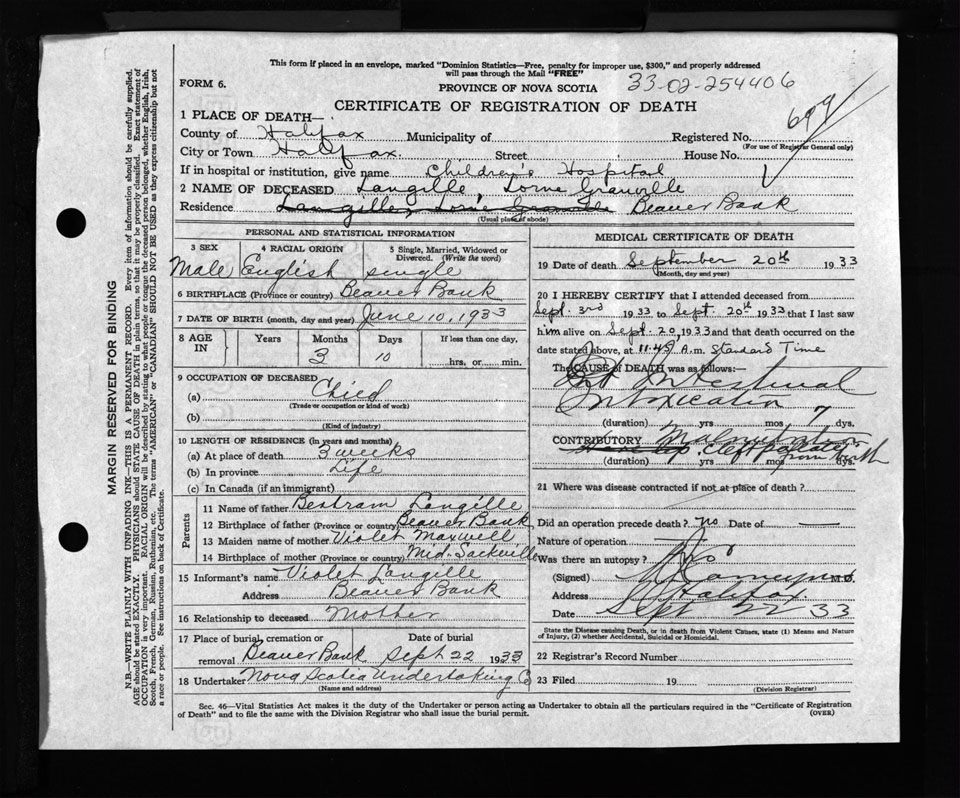 This form if placed in an envelope, marked "Dominion Statistics—Free, penalty for improper use, $300," and properly addressed
will pass through the Mail "FREE"
FORM 6.
PROVINCE OF NOVA SCOTIA
33-02-254406
CERTIFICATE OF REGISTRATION OF DEATH
699
1 PLACE OF DEATH—
County of Halifax Municipality of Registered No.
(For use of Registrar General only)
City or Town Halifax. Street House No.
If in hospital or institution, give name Children's Hospital
2 NAME OF DECEASED Langille, Lorne Granville
Residence Langille, Lorne Granville Beaver Bank
(Usual place of abode)
PERSONAL AND STATISTICAL INFORMATION
3 SEX 4 RACIAL ORIGIN 5 Single, Married, Widowed or
Divorced. (Write the word)
Male English single
6 BIRTHPLACE (Province or country) Beaver Bank
7 DATE OF BIRTH (month, day and year) June 10, 1933
8 AGE IN Years Months Days If less than one day,
3 10 hrs. or min.
9 OCCUPATION OF DECEASED
(a) Child
(Trade or occupation or kind of work)
(b)
(Kind of industry)
10 LENGTH OF RESIDENCE (in years and months)
(a) At place of death 3 weeks
(b) In province Life
(c) In Canada (if an immigrant)
Parents
11 Name of father Bertram Langille
12 Birthplace of father (Province or country) Beaver Bank
13 Maiden name of mother Violet Maxwell
14 Birthplace of mother (Province or country) Mid. Sackville
15 Informant's name Violet Langille
Address Beaver Bank
16 Relationship to deceased Mother
17 Place of burial, cremation or Date of burial
removal Beaver Bank Sept 22 1933
18 Undertaker Nova Scotia Undertaking Co
(Name and address)
MEDICAL CERTIFICATE OF DEATH
19 Date of death September 20th 1933
(Month, day and year)
20 I HEREBY CERTIFY that I attended deceased from
Sept. 3rd 1933 to Sept. 20th 1933 that I last saw
him alive on Sept. 20, 1933 and that death occurred on the
date stated above, at 11.45 A.m. Standard Time
The CAUSE of DEATH was as follows:—
Intestinal
Intoxication
(duration) yrs mos 7 dys.
CONTRIBUTORY Malnutrition
Hare lip, cleft palate
(duration) yrs mos dys.
from birth
21 Where was disease contracted if not at place of death?
Did an operation precede death? No Date of —
Nature of operation —
Was there an autopsy? No
(Signed) M.D.
Address Halifax
Date Sept 22 33
State the Disease causing Death, or in death from Violent Causes, state (1) Means and Nature
of Injury, (2) whether Accidental, Suicidal or Homicidal.
22 Registrar's Record Number
23 Filed 19
(Division Registrar)
Sec. 46—Vital Statistics Act makes it the duty of the Undertaker or person acting as Undertaker to obtain all the particulars required in the "Certificate of Registration
of Death" and to file the same with the Division Registrar who shall issue the burial permit. (OVER)
MARGIN RESERVED FOR BINDING
N.B.—WRITE PLAINLY WITH UNFADING INK—THIS IS A PERMANENT RECORD. Every item of information should be carefully supplied.
AGE should be stated EXACTLY. PHYSICIANS should STATE CAUSE OF DEATH in plain terms, so that it may be properly classified. Exact statement of
OCCUPATION is very important. RACIAL ORIGIN will be described by stating to what people or tongue the deceased person belonged, whether English, Irish,
Scotch, French, German, Russian, Ruthenian, etc. The terms "AMERICAN" or "CANADIAN" SHOULD NOT BE USED as they express citizenship but not
a race or people. See instructions on back of Certificate.